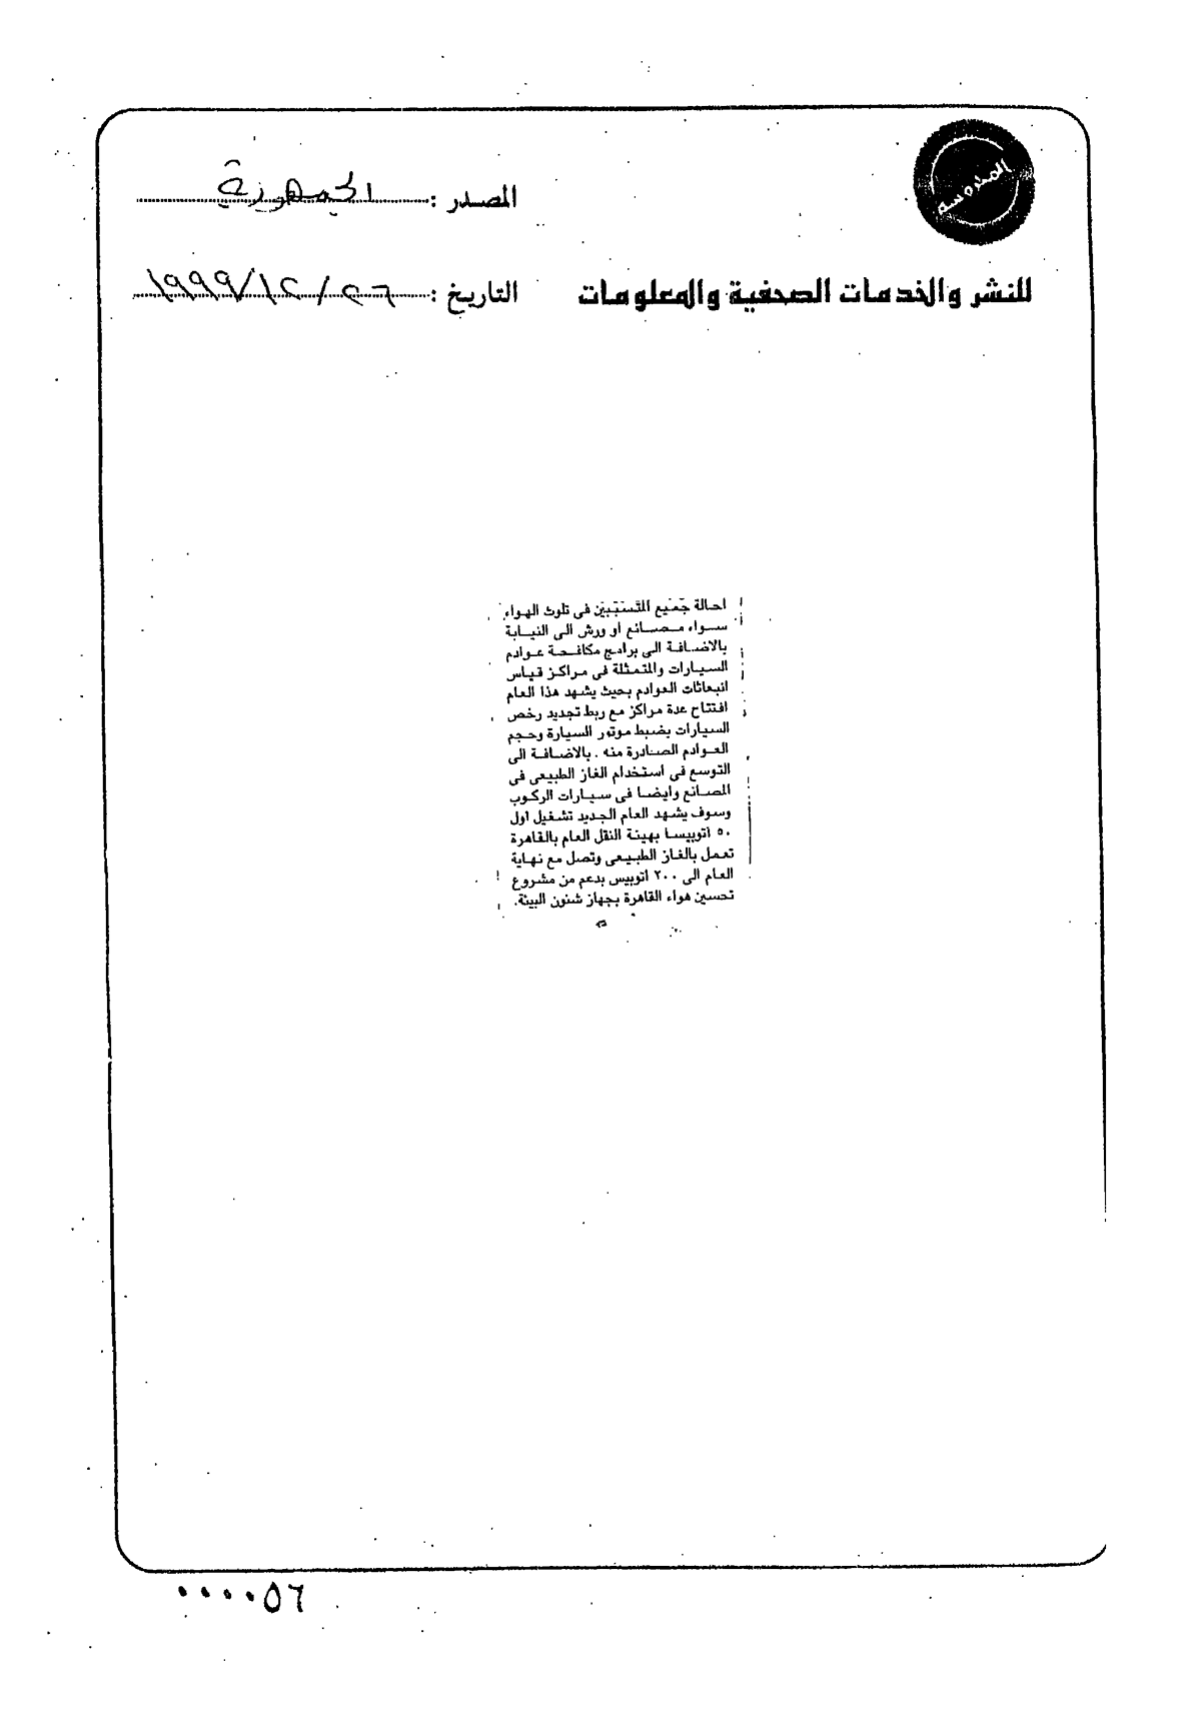 المحروسة
المصدر : الجمهورية
للنشر والخدمات الصحفية والمعلومات
التاريخ : ٢٦ / ١٢ / ١٩٩٩
احالة جميع المتسببين فى تلوث الهواء
سواء مصانع او ورش الى النيابة
بالاضافة الى برامج مكافحة عوادم
السيارات والمتمثلة فى مراكز قياس
انبعاثات العوادم بحيث يشهد هذا العام
افتتاح عدة مراكز مع ربط تجديد رخص
السيارات بضبط موتور السيارة وحجم
العوادم الصادرة منه . بالاضافة الى
التوسع فى استخدام الغاز الطبيعى فى
المصانع وايضا فى سيارات الركوب
وسوف يشهد العام الجديد تشغيل اول
٥٠ اتوبيسا بهيئة النقل العام بالقاهرة
تعمل بالغاز الطبيعى وتصل مع نهاية
العام الى ٢٠٠ اتوبيس بدعم من مشروع
تحسين هواء القاهرة بجهاز شئون البيئة.
٠٠٠٠٥٦